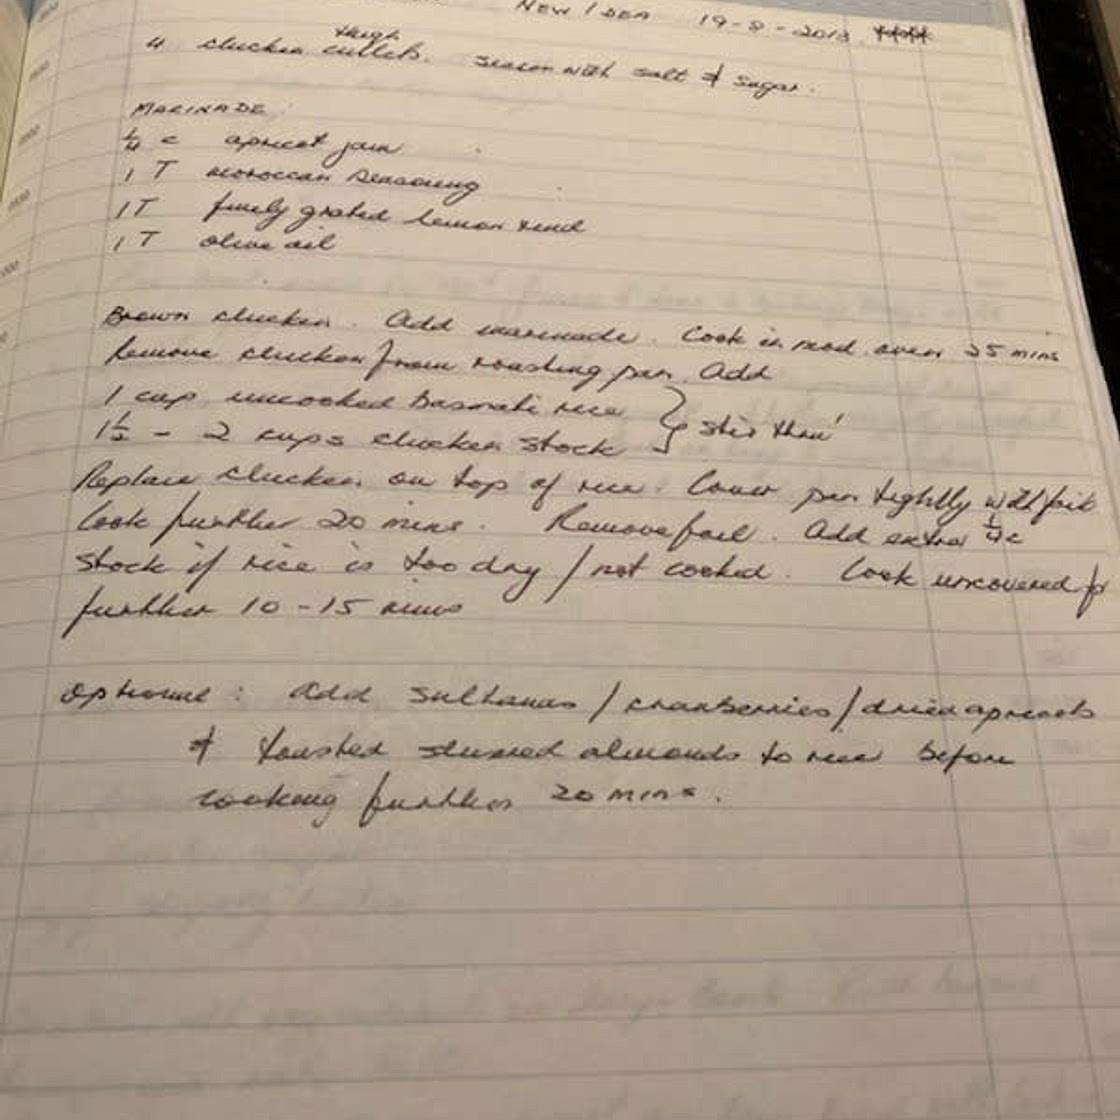 NEW IDEA 19-8-2013 ****
4 chicken thigh cutlets. Season with salt & sugar.
MARINADE:
1/4 c apricot jam
1 T moroccan seasoning
1T finely grated lemon rind
1T olive oil
Brown chicken. Add marinade. Cook in mod. oven 25 mins
Remove chicken from roasting pan. Add
1 cup uncooked basmati rice } stir thru'
1 1/2 - 2 cups chicken stock
Replace chicken on top of rice. Cover pan tightly with foil
Cook further 20 mins. Remove foil. Add extra 1/4 c
stock if rice is too dry / not cooked. Cook uncovered for
further 10-15 mins
Optional: Add sultanas / cranberries / dried apricots
& toasted slivered almonds to rice before
cooking further 20 mins.